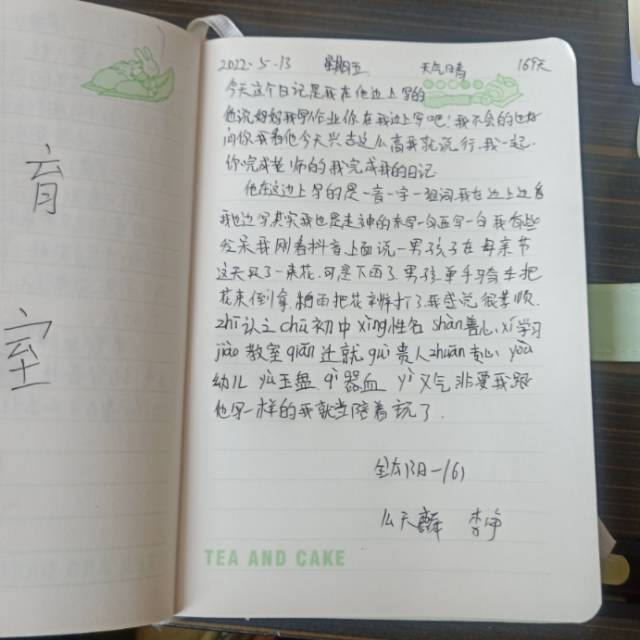 育
室
2022-5-13 星期五 天气晴 169天
今天这个日记是我在他边上写的
他说好好我写作业你在我边上写吧.我不会的也好
问你我看他今天兴古这么高我就说行.我一起.
你完成老师的我完成我的日记
他在这边上写的是一音一字一组词我在边上边看
我也边写其实我也是走神的东写一句西写一句我有些
发呆我刚看抖音上面说一男孩子在母亲节
这天买了一束花.可是下雨了男孩单手骑车把
花束倒拿.稍雨把花辨打了我感觉很孝顺.
zhī认之 chū初中 xìng姓名 shàn善心 xí学习
jiào教室 qiān迁就 guì贵人 zhuān专心 yòu
幼儿 yù玉盘 qì器皿 yì义气 非要我跟
他写一样的我就当陪着玩了.
TEA AND CAKE